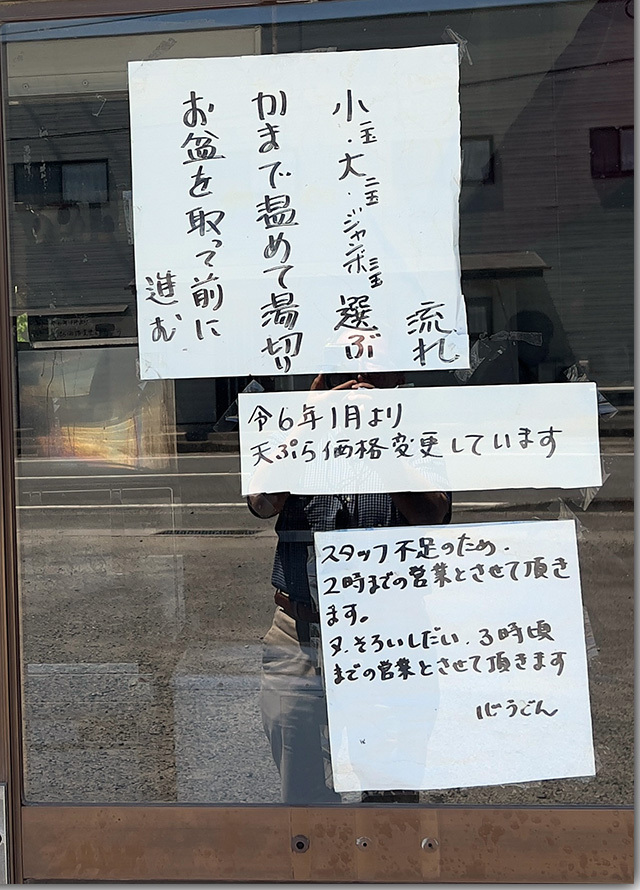 流れ
小一玉・大二玉・ジャンボ三玉 選ぶ
かまで温めて湯切り
お盆を取って前に
進む
令6年1月より
天ぷら価格変更しています
スタッフ不足のため、
2時までの営業とさせて頂き
ます。
又、そろいしだい、3時頃
までの営業とさせて頂きます
心うどん